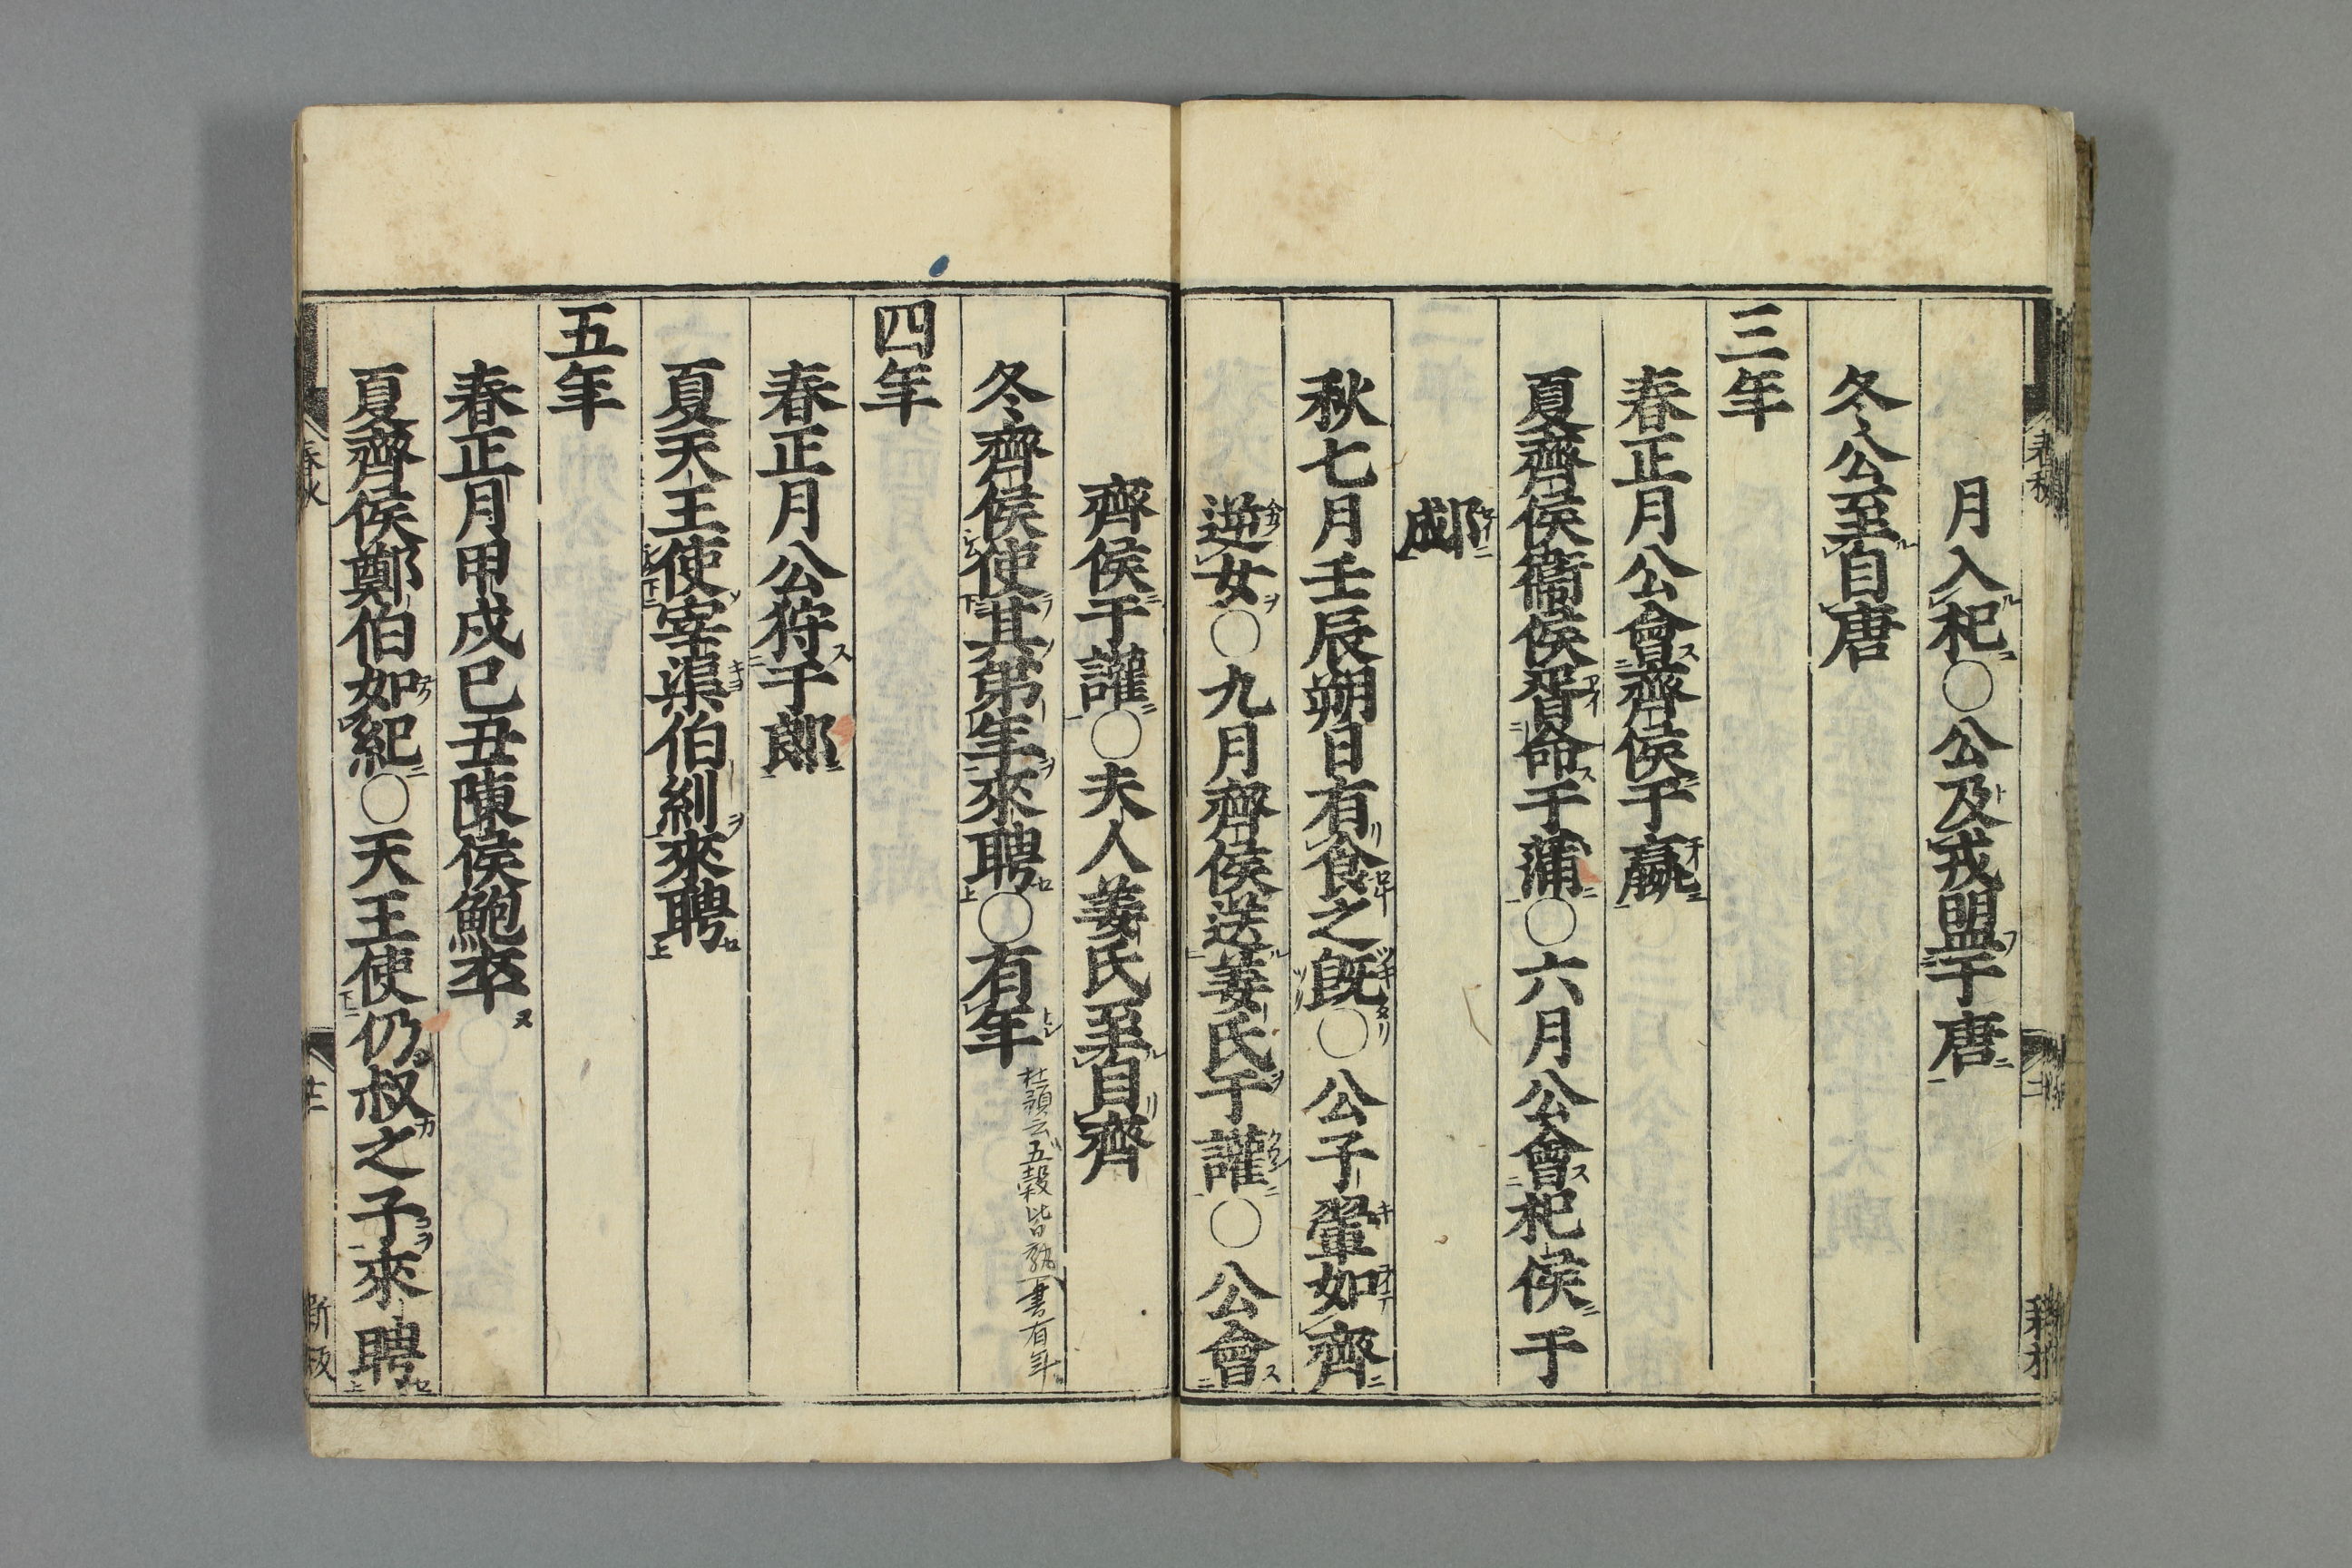 月入杞○公及戎盟于唐
冬公至自唐
三年
春正月公會齊侯于嬴
夏齊侯衞侯胥命于蒲○六月公會杞侯于
郕
秋七月壬辰朔日有食之既○公子翬如齊
逆女○九月齊侯送姜氏于讙○公會
齊侯于讙○夫人姜氏至自齊
冬齊侯使其弟年來聘○有年
杜預云五穀皆熟書有年
四年
春正月公狩于郎
夏天王使宰渠伯糾來聘
五年
春正月甲戌己丑陳侯鮑卒
夏齊侯鄭伯如紀○天王使仍叔之子來聘
春秋
新板